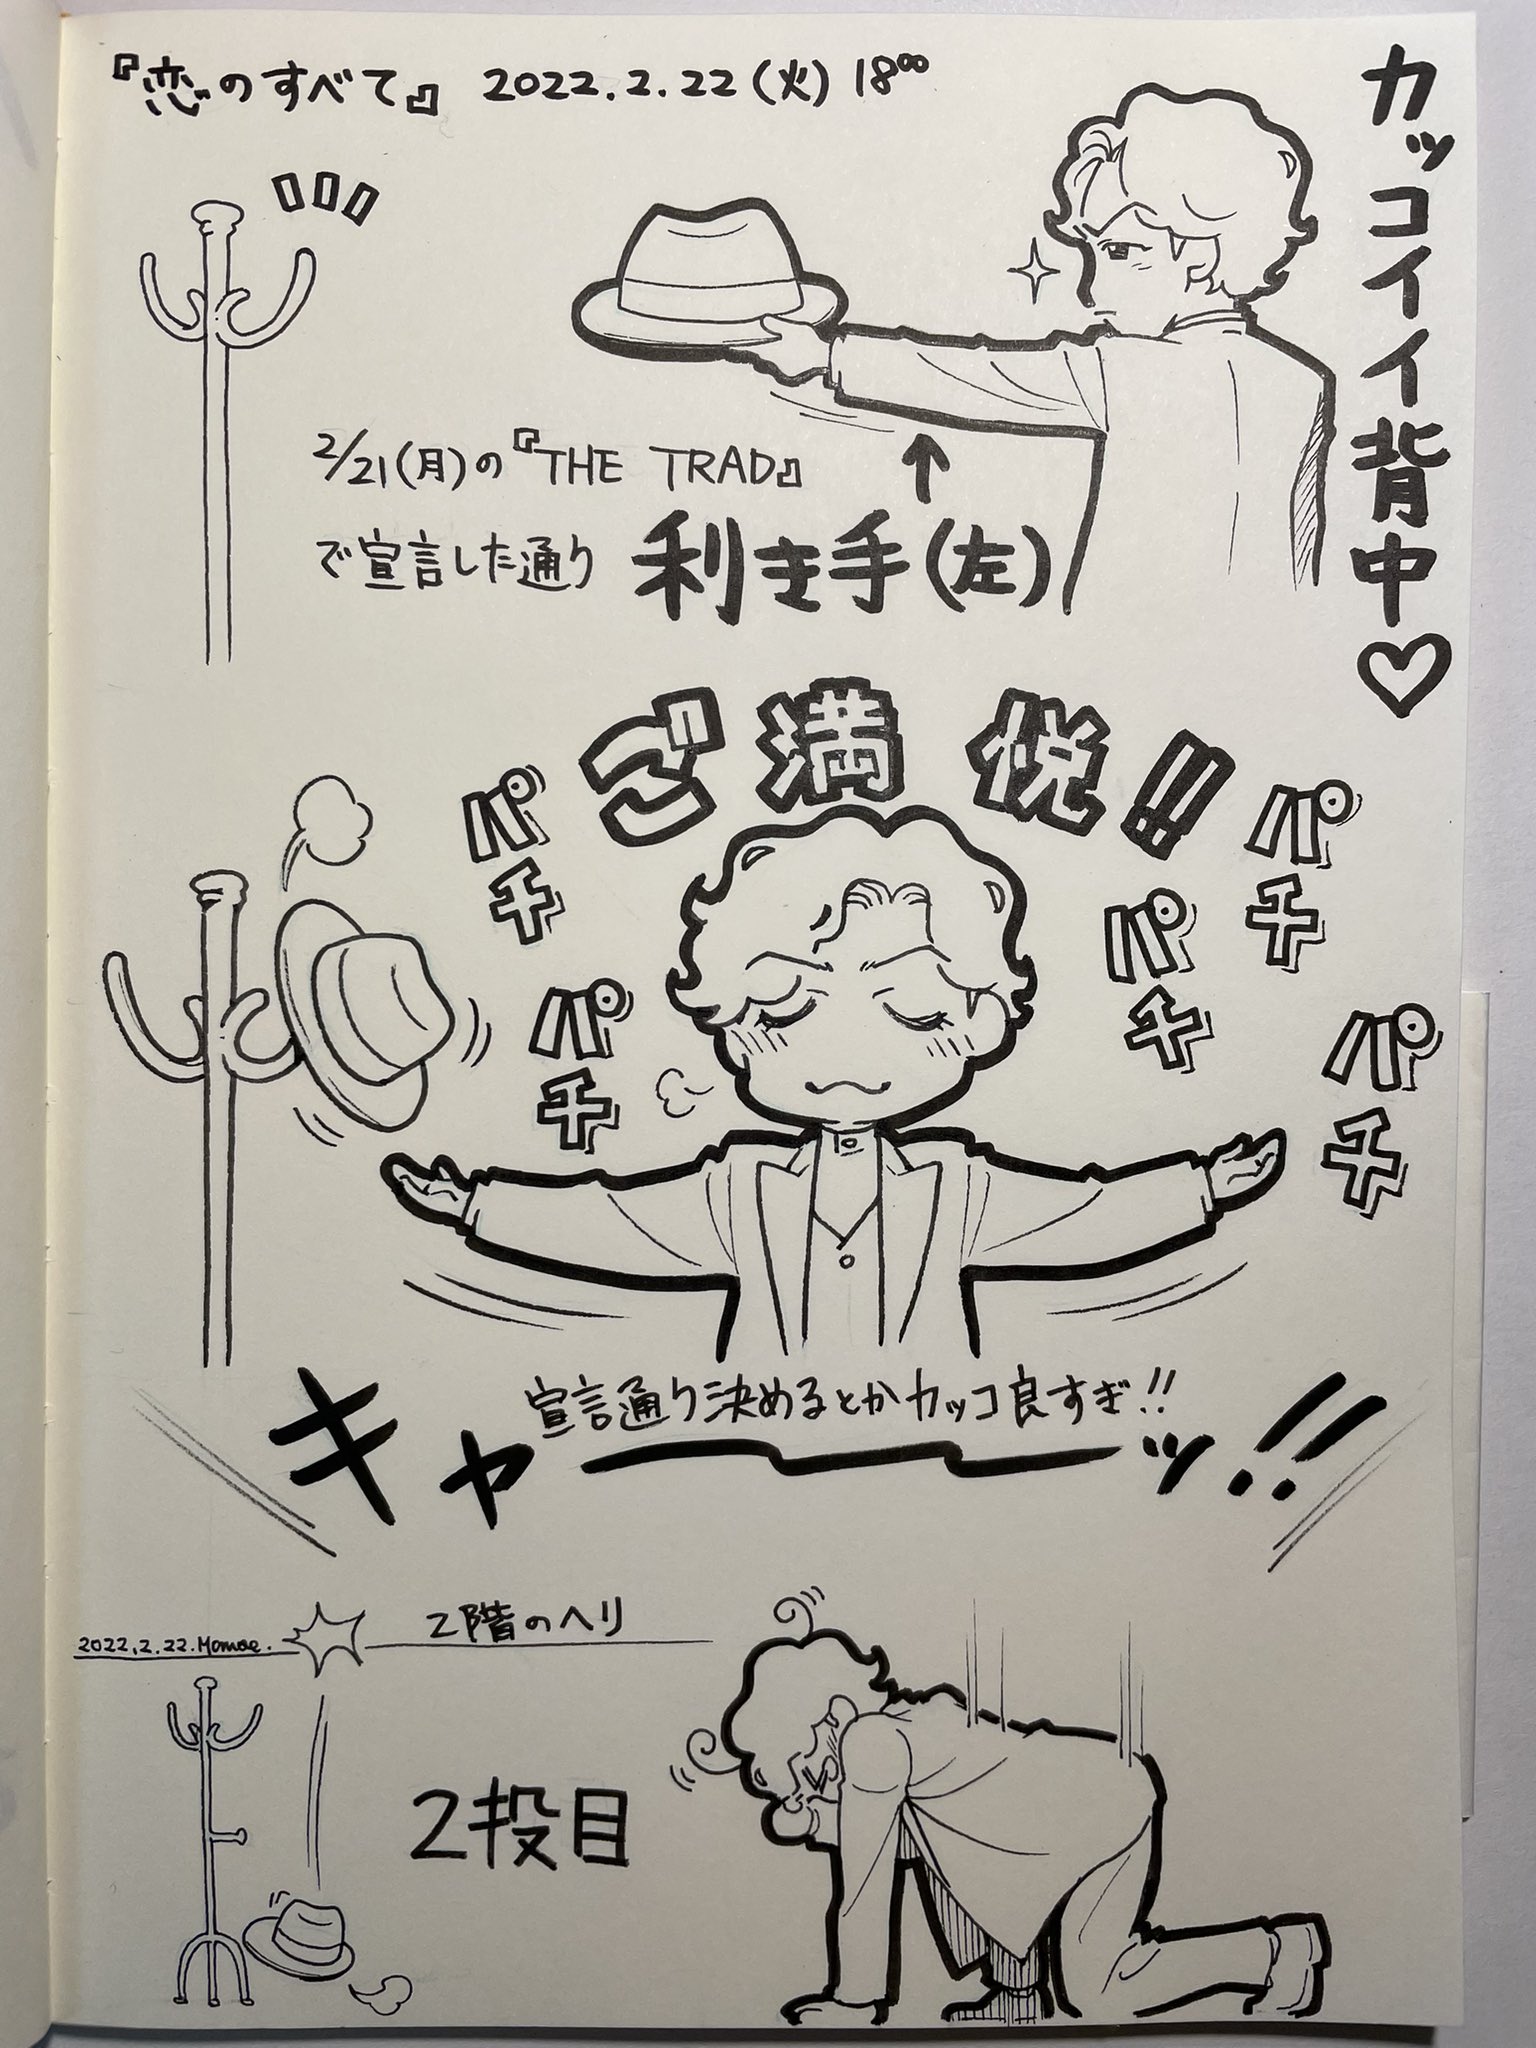 『恋のすべて』 2022.2.22(火) 18⁰⁰
カッコイイ背中♡
2/21(月)の『THE TRAD』
で宣言した通り 利き手(左)
↑
ご満悦!!
パチ
パチ
パチ
パチ
パチ
宣言通り決めるとかカッコ良すぎ!!
キャーーッ!!
2022.2.22.Momoe.
2階のヘリ
2投目